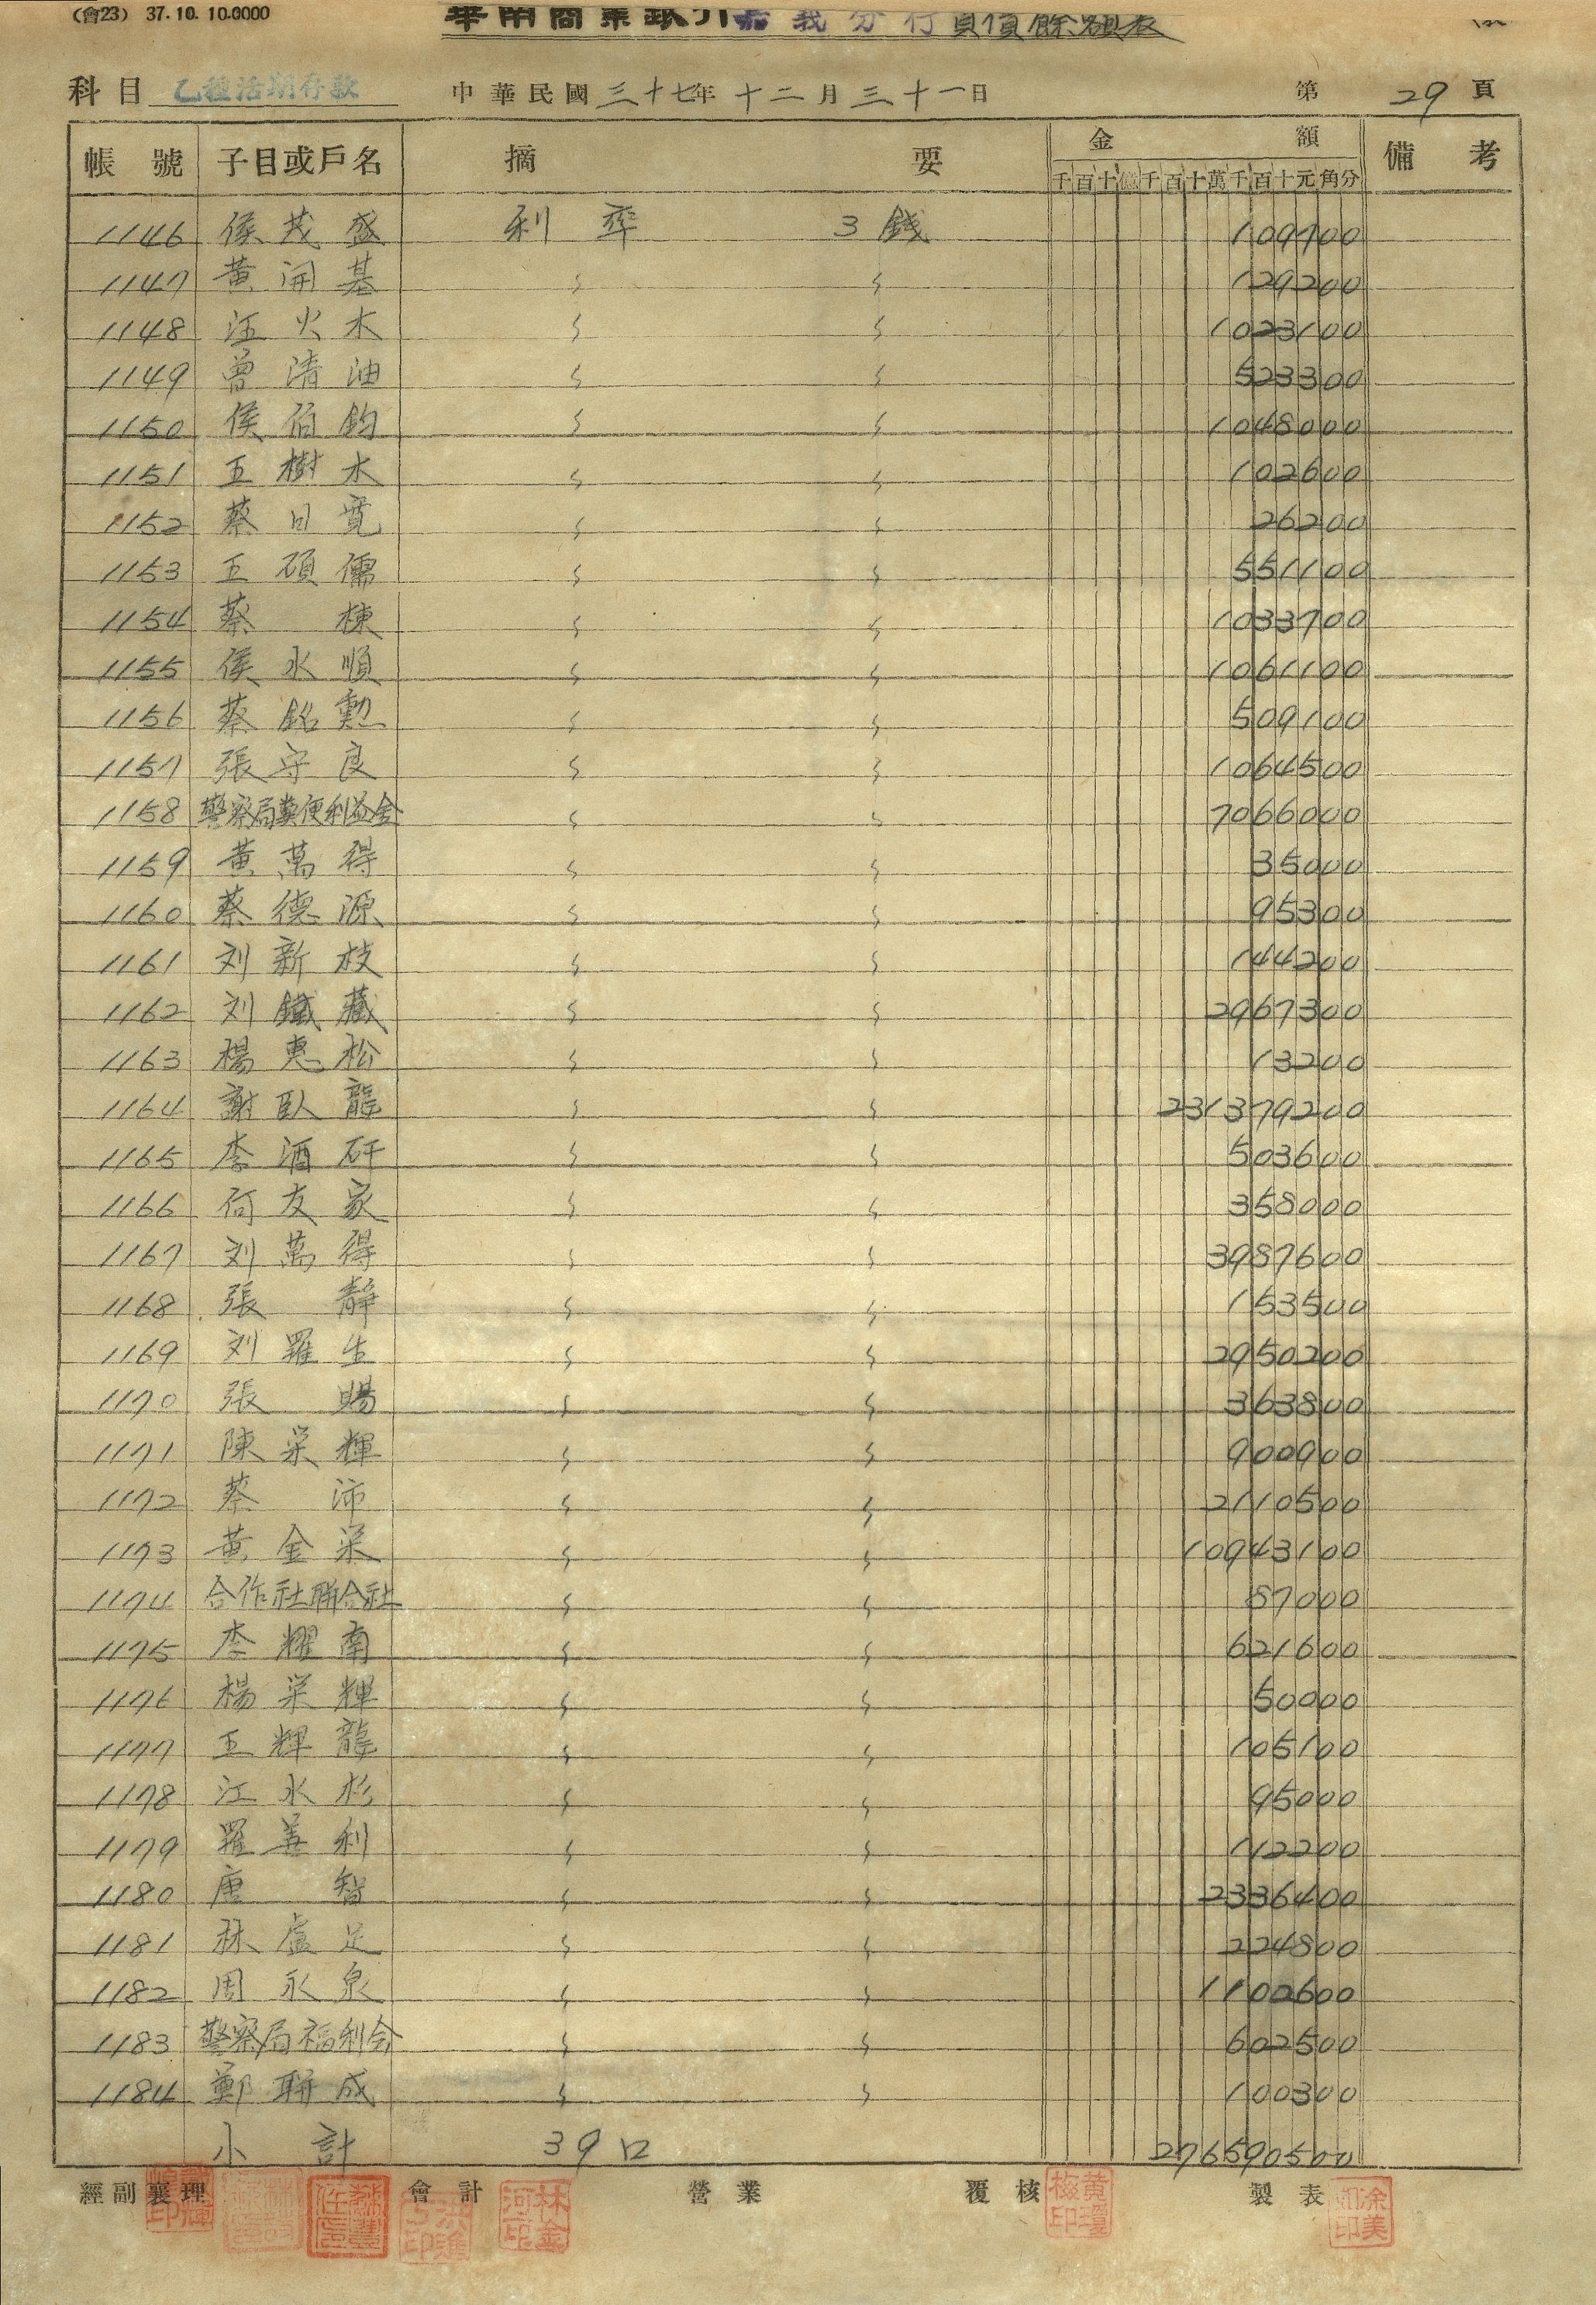 (會23) 37.10.10.0000
華南商業銀行嘉義分行負債餘額表
科目 乙種活期存款 中華民國三十七年十二月三十一日 第29頁
帳號 子目或戶名 摘要 金額 備考
千百十億千百十萬千百十元角分
1146 侯茂盛 利率 3錢 109700
1147 黃開基 〃 〃 129200
1148 汪火木 〃 〃 1023100
1149 曾清油 〃 〃 523300
1150 侯伯鈞 〃 〃 1048000
1151 王樹木 〃 〃 102600
1152 蔡日寬 〃 〃 26200
1153 王碩儒 〃 〃 551100
1154 蔡棟 〃 〃 1033700
1155 侯水順 〃 〃 1061100
1156 蔡銘勲 〃 〃 509100
1157 張守良 〃 〃 1064500
1158 警察局糞便利益金 〃 〃 7066000
1159 黃萬得 〃 〃 35000
1160 蔡德源 〃 〃 95300
1161 刘新枝 〃 〃 144200
1162 刘鐵藏 〃 〃 2967300
1163 楊惠松 〃 〃 13200
1164 謝臥龍 〃 〃 231379200
1165 李酒矸 〃 〃 503600
1166 何友家 〃 〃 358000
1167 刘萬得 〃 〃 3987600
1168 張靜 〃 〃 153500
1169 刘羅生 〃 〃 2950200
1170 張賜 〃 〃 363800
1171 陳栄輝 〃 〃 900900
1172 蔡沛 〃 〃 2110500
1173 黃金栄 〃 〃 10943100
1174 合作社聯合社 〃 〃 87000
1175 李耀南 〃 〃 621600
1176 楊栄輝 〃 〃 50000
1177 王輝龍 〃 〃 105100
1178 江水杉 〃 〃 95000
1179 羅善利 〃 〃 112200
1180 唐智 〃 〃 2336400
1181 林盧足 〃 〃 224800
1182 周永泉 〃 〃 1102600
1183 警察局福利会 〃 〃 602500
1184 鄭聯成 〃 〃 100300
小計 39口 276590500
經副襄理 會計 營業 覆核 製表
林金河印